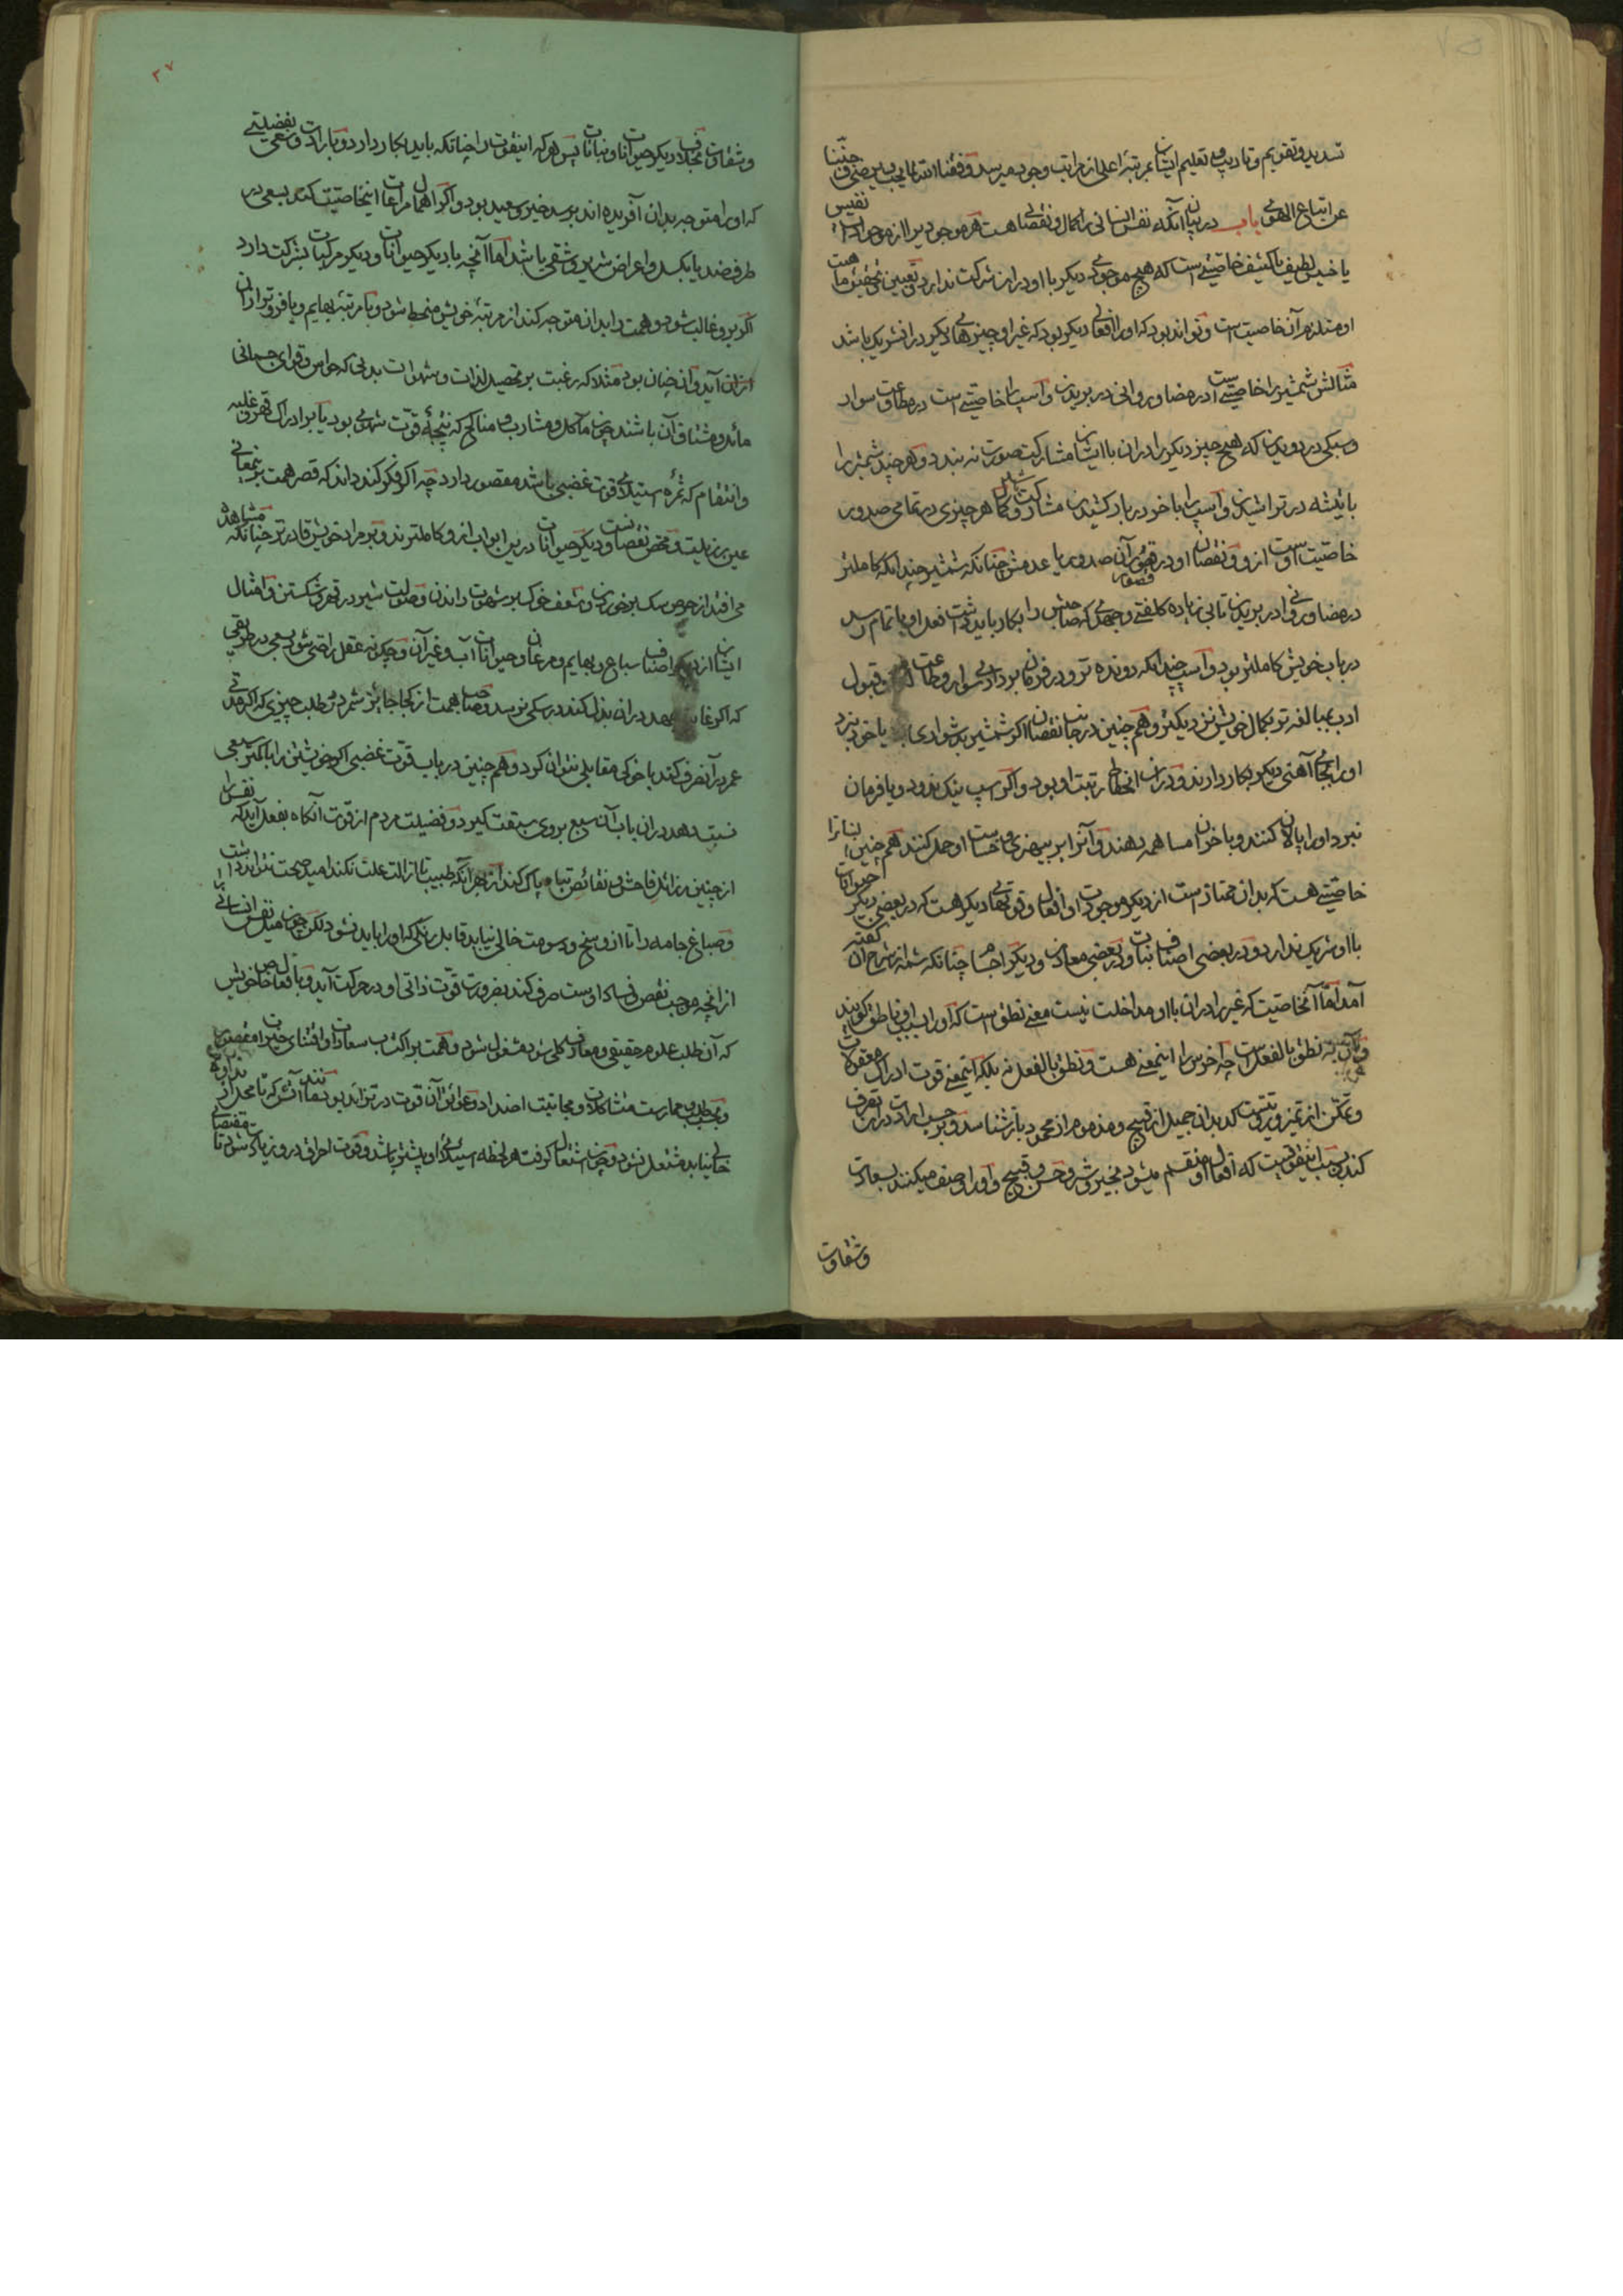 تسدید و تقویم و تادیب و تعلیم ایشان بمرتبهٔ اعلی از مراتب وجود میرسد وفقنا الله لما یحب و یرضی و جنبنا
عن اتباع الهوی باب در بیان آنکه نفس انسانی را کمال و نقصانی هست هر موجودی را از موجودات نفیس
یا خسیس لطیف یا کثیف خاصیتی است که هیچ موجودی دیگر با او در ان شرکت ندارد و تعیین و تحقیق ماهیت
او مستلزم آن خاصیت است و تواند بود که او را افعالی دیگر بود که غیر او چیزهای دیگر در ان شریک باشد
مثالش شمشیر را خاصیتی است در مضا و روانی در بریدن و اسپ را خاصیتی است در مطاوعت سوار
و سبکی در دویدن که هیچ چیز دیگر را در ان با ایشان مشارکت صورت نه بندد و هر چند شمشیر را
با تیشه در تراشیدن و اسپ را با خر در بار کشیدن مشارکت است و کمال هر چیزی در تمامی صدور
خاصیت اوست از و و نقصان او در قصور آن صدور یا عدمش چنانکه شمشیر چندانکه کاملتر
در مضا و روانی در بریدن تا بی زیاده کلفتی و جهدی که صاحبش را بکار باید داشت فعل او با تمام رسد
در باب خویش کاملتر بود و اسپ چندانکه دونده تر و در فرمان برداری سوار و طاعت لگام و قبول
ادب بمبالغه تر بکمال خویش نزدیکتر و هم چنین در جانب نقصان اگر شمشیر بدشواری برد یا خود نبرد
او را بجای آهنی دیگر بکار دارند و در ان انحطاط رتبت او بود و اگر اسپ نیک ندود و یا فرمان
نبرد او را پالانی کنند و با خران مساهمه دهند و آنرا بر بیهنری و خساست او حمل کنند هم چنین انسانرا
خاصیتی هست که بدان ممتاز است از دیگر موجودات و افعال و قوتهای دیگر هست که در بعضی دیگر حیوانات
با او شریک ندارد و در بعضی اصناف نباتات و در بعضی معادن و دیگر اجسام چنانکه شمهٔ از شرح آن گفته
آمد اما آنخاصیت که غیر را در ان با او مداخلت نیست معنی نطق است که او را بسبب او ناطق گویند
و آن نه نطق بالفعل است چه اخرس را اینمعنی هست و نطق بالفعل نه بلکه اینمعنی قوت ادراک معقولات
و تمکن از تمیز و رویتست که بدان جمیل از قبیح و مذموم از محمود باز شناسد و بر حسب ارادت در ان تصرف
کند و بسبب اینقوتست که افعال او منقسم میشود بخیر و شر و حسن و قبیح و او را وصف میکنند بسعادت
وشقاوت
۲۷
و شقاوت بخلاف دیگر حیوانات و نباتات پس هر که اینقوت را چنانکه باید بکار دارد و بارادت و سعی بفضیلتی
که او را متوجه بدان آفریده اند برسد خیر و سعید بود و اگر اهمال مراعات اینخاصیت کند بسعی در
طرف ضد یا بکسل و اعراض شریر و شقی باشد اما آنچه با دیگر حیوانات و دیگر مرکبات بشرکت دارد
اگر برو غالب شود و همت را بدان متوجه کند از مرتبهٔ خویش منحط شود و با مرتبهٔ بهایم و یا فروتر ازان
ازان آید و ان چنان بود مثلا که رغبت بر تحصیل لذات و شهوات بدنی که حواس و قوای جسمانی
مائل و مشتاق آن باشند چون مآکل و مشارب و مناکح که نتیجهٔ قوت شهوی بود یا بر ادراک قهر و غلبه
و انتقام که ثمرهٔ استیلای قوت غضبی باشد مقصور دارد چه اگر فکر کند داند که قصر همت برینمعانی
عین رذیلت و محض نقصانست و دیگر حیوانات درین ابواب ازو کاملترند و بر مراد خویش قادرتر چنانکه مشاهده
می افتد از حرص سک بر خوردن و شعف خوک بر شهوت راندن و صولت شیر در قهر و شکستن و امثال
ایشان از دیگر اصناف سباع و بهایم و مرغان و حیوانات آب و غیر آن و چگونه عقل راضی شود بسعی در طریقی
که اگر غایت جهد در ان بذل کند در سگی نرسد و صاحب همت از کجا جایز شمرد در طلب چیزی که اگر مدتی
عمر در آن صرف کند با خوکی مقابلی نتوان کرد و هم چنین در باب قوت غضبی اگر خویشتن را با کمتر سبعی
نسبت دهد در ان باب آن سبع بر وی سبقت گیرد و فضیلت مردم از قوت آنگاه بفعل آید که نفس را
از چنین رذائل فاحش و نقائص تباه پاک کند از بهر آنکه طبیب تا ازالت علت نکند امید صحت نتواند داشت
و صباغ جامه را تا از وسخ و دسومت خالی نیابد قابل رنگی که او را باید نشود لکن چون میل نفس انسانی
از انچه موجب نقص و فساد اوست صرف کند بضرورت قوت ذاتی او در حرکت آید و بافعال خاص خویش
که آن طلب علوم حقیقی و معارف کلی بود مشغول شود و همت بر اکتساب سعادات و اقتنای خیرات مقصور
و بحسب طلب و ممارست مشاکلات و مجانبت اضداد و عوایق آن قوت در تزاید بود مانند آتش که تا محل از نداوت
خالی نیابد مشتعل نشود و چون اشتعال گرفت هر لحظه استیلای او بیشتر باشد و قوت احراق درو زیادت شود تا مقتضای